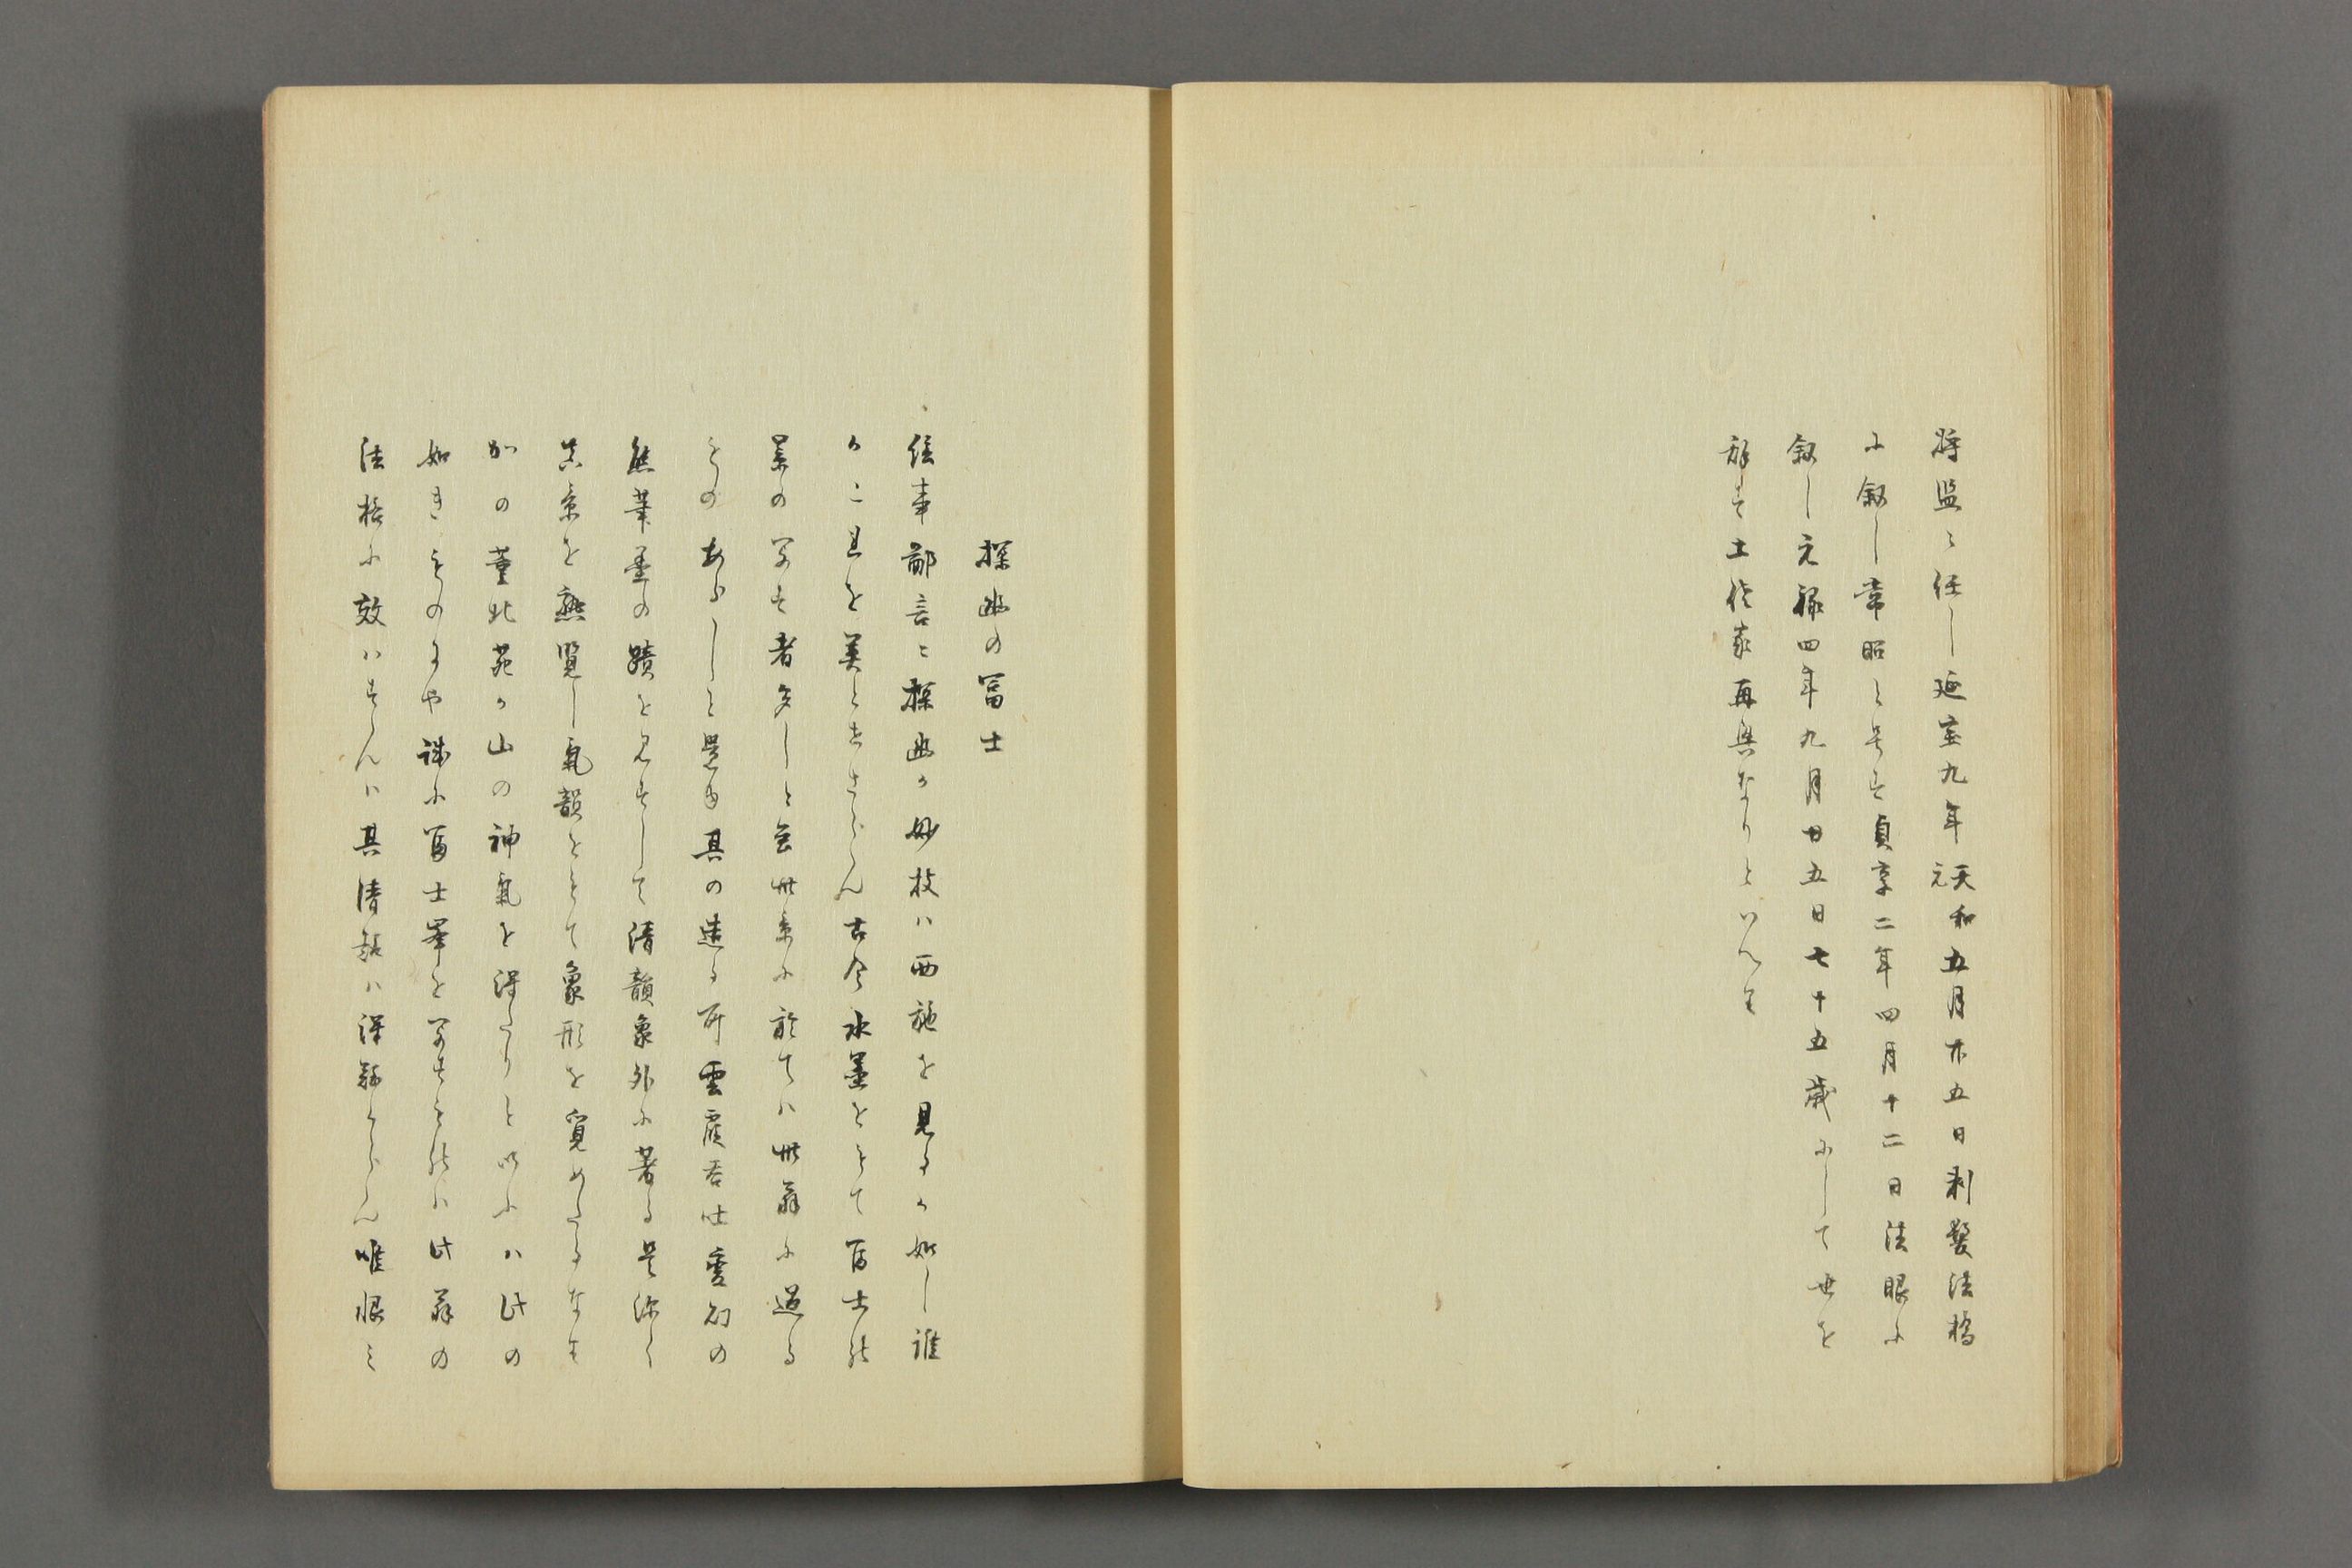 将監に任し延宝九年天和元五月廿五日剃髪法橋
に叙し常昭と号す貞享二年四月十二日法眼に
叙し元禄四年九月廿五日七十五歳にして世を
辞す土佐家再興なりといへり
探幽の冨士
往事鄙言に探幽か妙枝ハ西施を見るか如し誰
かこれを美とせさらん古今水墨をもて冨士の
景の写す者多しと云共景に於てハ此翁に過る
ものあらしと是や其の造る所雲霞吞吐変幻の
熊筆墨の蹟を見すして清韻象外に著る是深く
真景を熟覧し氣韻をもて象形を覓めたるなり
かの董北苑か山の神氣を得たりと以ふハ此の
如きものにや誠に冨士峯を写すものハ此翁の
法格に效ハすんハ其清 ハ得難からん唯恨ミ